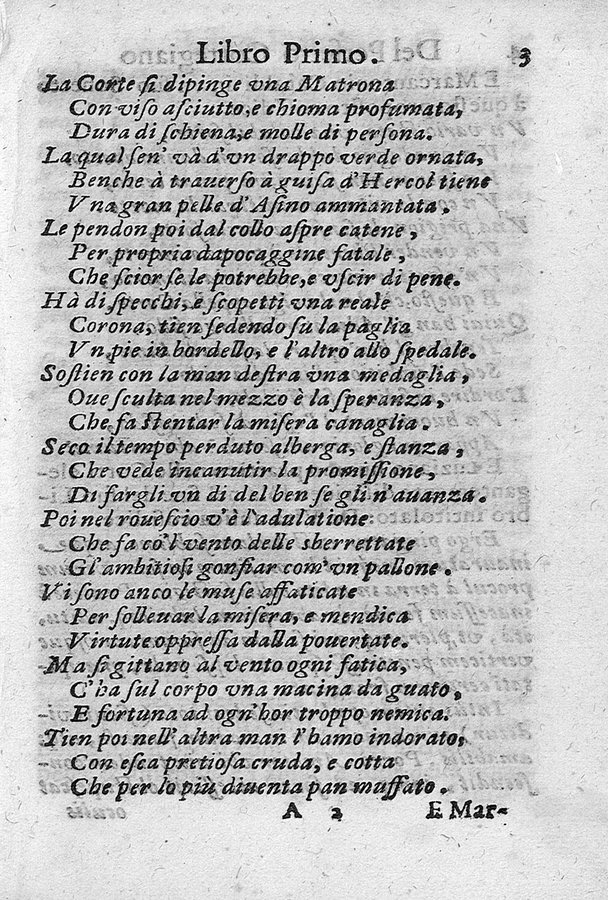 Libro Primo. 3
La Corte ſi dipinge vna Matrona
Con viſo aſciutto, e chioma profumata,
Dura di ſchiena, e molle di perſona.
La qual ſen' và d'vn drappo verde ornata,
Benche à trauerſo à guiſa d'Hercol tiene
Vna gran pelle d'Aſino ammantata.
Le pendon poi dal collo aſpre catene,
Per propria dapocaggine fatale,
Che ſcior ſe le potrebbe, e vſcir di pene.
Hà di ſpecchi, e ſcopetti vna reale
Corona, tien ſedendo ſu la paglia
Vn pie in bordello, e l'altro allo ſpedale.
Soſtien con la man deſtra vna medaglia,
Oue ſculta nel mezzo è la ſperanza,
Che fa ſtentar la miſera canaglia.
Seco il tempo perduto alberga, e ſtanza,
Che vede incanutir la promiſſione,
Di fargli vn di del ben ſe gli n'auanza.
Poi nel roueſcio v'è l'adulatione
Che fa co'l vento delle sberrettate
Gl'ambitioſi gonfiar com'vn pallone.
Vi ſono anco le muſe affaticate
Per ſolleuar la miſera, e mendica
Virtute oppreſſa dalla pouertate.
Ma ſi gittano al vento ogni fatica,
C'ha ſul corpo vna macina da guato,
E fortuna ad ogn'hor troppo nemica.
Tien poi nell'altra man l'hamo indorato,
Con eſca pretioſa cruda, e cotta
Che per lo più diuenta pan muffato.
A 2 E Mar-